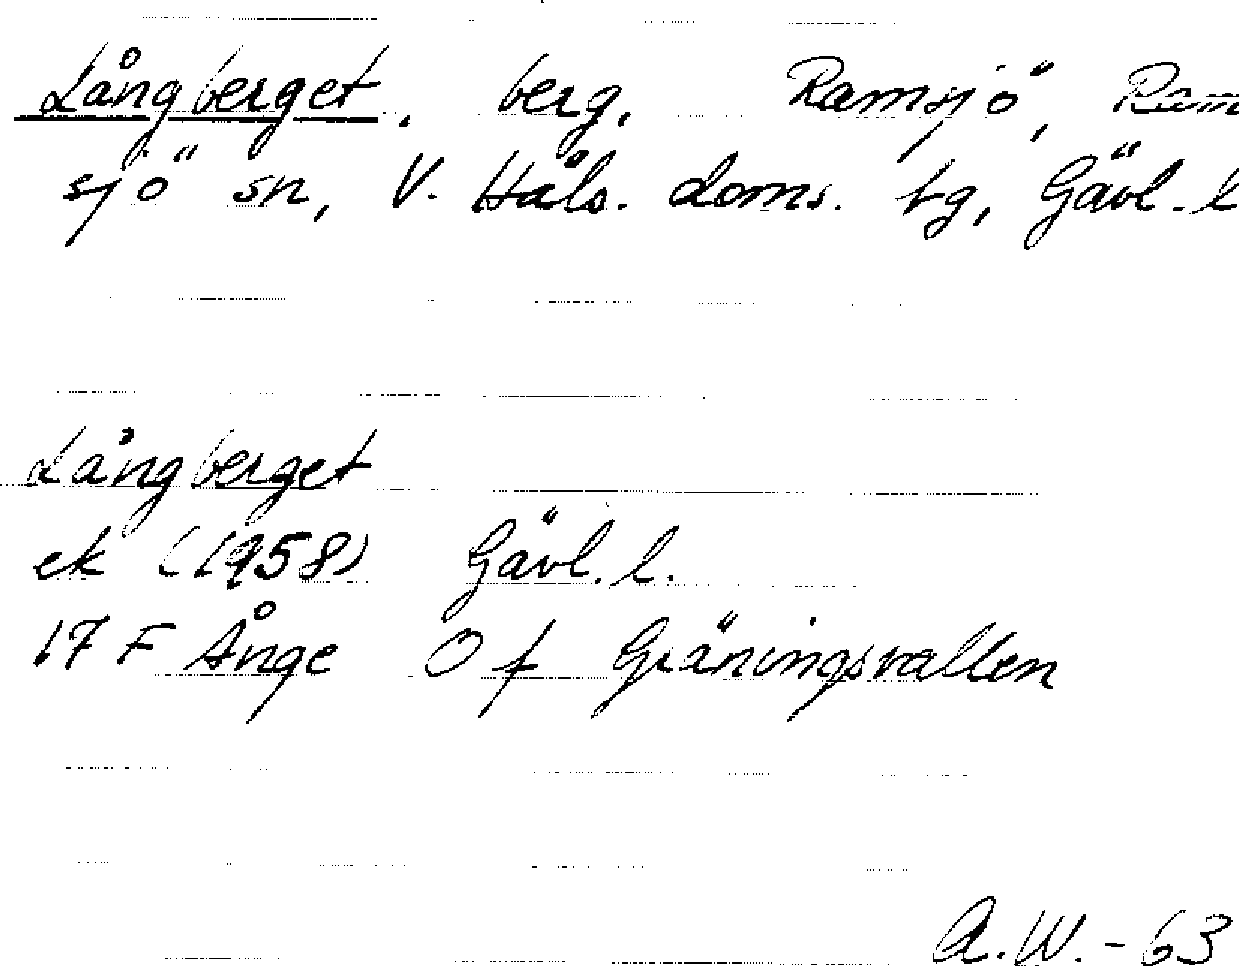 Långberget, berg, Ramsjö, Ram
sjö sn, V. Häls. doms. tg, Gävl. l
Långberget
ek (1958) Gävl. l.
17 F Ånge O f Gräningsvallen
A.W.-63